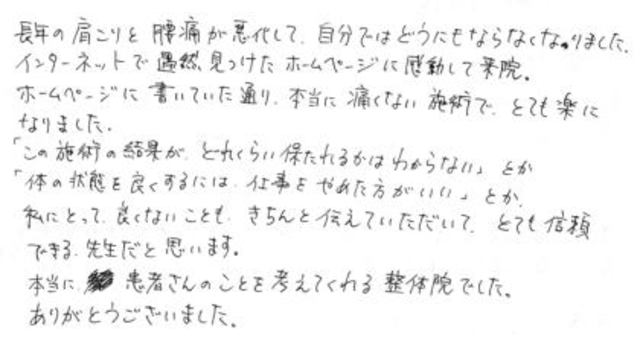 長年の肩こりと腰痛が悪化して、自分ではどうにもならなくなりました。
インターネットで偶然見つけたホームページに感動して来院。
ホームページに書いていた通り、本当に痛くない施術で、とても楽に
なりました。
「この施術の結果が、どれくらい保たれるかはわからない」とか
「体の状態を良くするには、仕事をやめた方がいい」とか、
私にとって、良くないことも、きちんと伝えていただいて、とても信頼
できる先生だと思います。
本当に患者さんのことを考えてくれる整体院でした。
ありがとうございました。